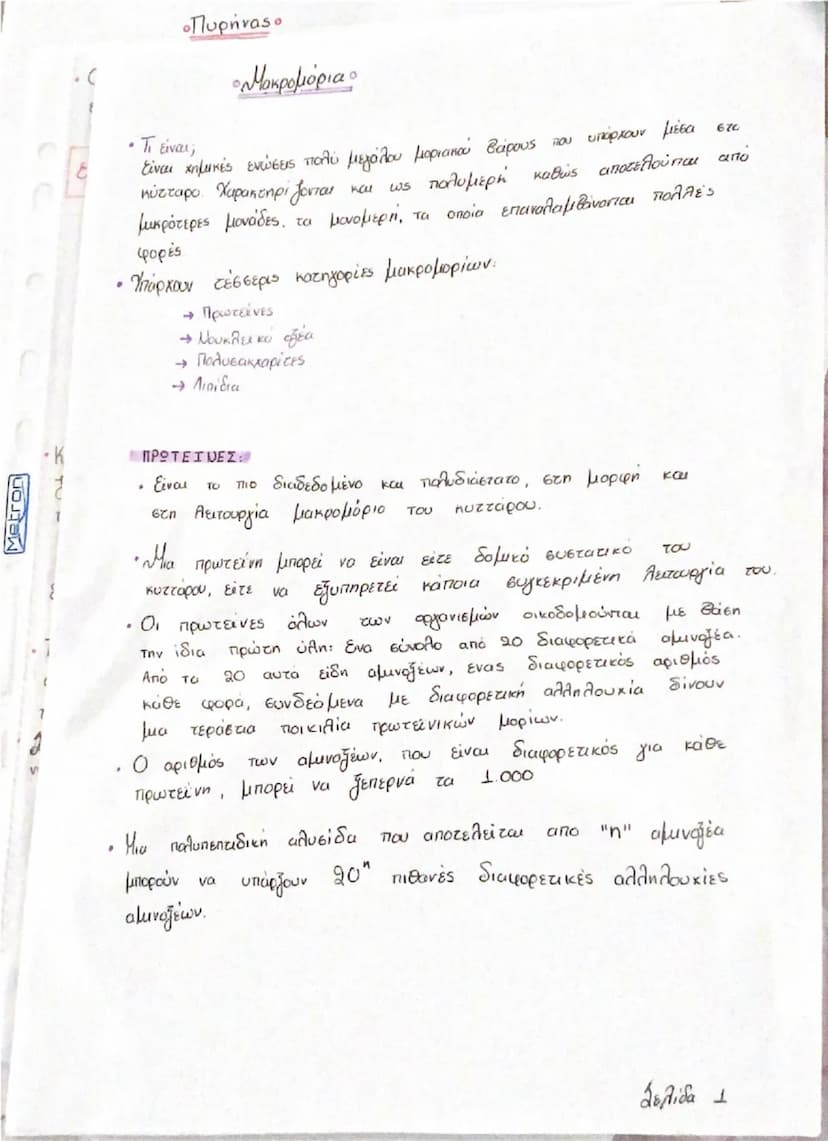 Πυρήνας
Μακρομόρια
• Τι είναι;
Είναι χημικές ενώσεις πολύ μεγάλου μοριακού βάρους που υπάρχουν μέσα στο
κύτταρο. Χαρακτηρίζονται και ως πολυμερή καθώς αποτελούνται από
μικρότερες μονάδες, τα μονομερή, τα οποία επαναλαμβάνονται πολλές
φορές
• Υπάρχουν τέσσερις κατηγορίες μακρομορίων:
→ Πρωτεΐνες
→ Νουκλεικά οξέα
→ Πολυσακχαρίτες
→ Λιπίδια
ΠΡΩΤΕΙΝΕΣ:
• Είναι το πιο διαδεδομένο και πολυδιάστατο, στη μορφή και
στη λειτουργία μακρομόριο του κυττάρου.
• Μια πρωτεΐνη μπορεί να είναι είτε δομικό συστατικό του
κυττάρου, είτε να εξυπηρετεί κάποια συγκεκριμένη λειτουργία του.
• Οι πρωτεΐνες όλων των οργανισμών οικοδομούνται με βάση
την ίδια πρώτη ύλη: Ένα σύνολο από 20 διαφορετικά αμινοξέα.
Από τα 20 αυτά είδη αμινοξέων, ένας διαφορετικός αριθμός
κάθε φορά, συνδεόμενα με διαφορετική αλληλουχία δίνουν
μια τεράστια ποικιλία πρωτεϊνικών μορίων.
• Ο αριθμός των αμινοξέων, που είναι διαφορετικός για κάθε
πρωτεΐνη, μπορεί να ξεπερνά τα 1.000
• Μια πολυπεπτιδική αλυσίδα που αποτελείται απο "n" αμινοξέα
μπορούν να υπάρξουν 20ⁿ πιθανές διαφορετικές αλληλουχίες
αμινοξέων.
Σελίδα 1
Metron